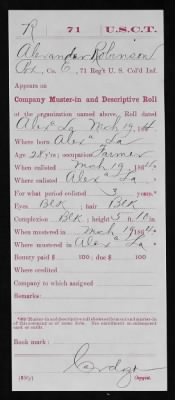 R 71 U.S.C.T.
Alexander Robinson
Pvt., Co. C, 71 Reg't U. S. Col'd Inf.
Appears on
Company Muster-in and Descriptive Roll
of the organization named above. Roll dated
Alexa La Mch 19, 1864
Where born Alexa La
Age 28 y'rs; occupation Farmer
When enlisted Mch 19, 1864.
Where enlisted Alexa La
For what period enlisted 3 years.*
Eyes Blk ; hair Blk
Complexion Blk ; height 5 ft. 10 in.
When mustered in Mch 19, 1864.
Where mustered in Alexa La
Bounty paid $ 100; due $ 100
Where credited
Company to which assigned
Remarks:
*See enrollment on subsequent
card or cards.
Book mark:
Copyist.